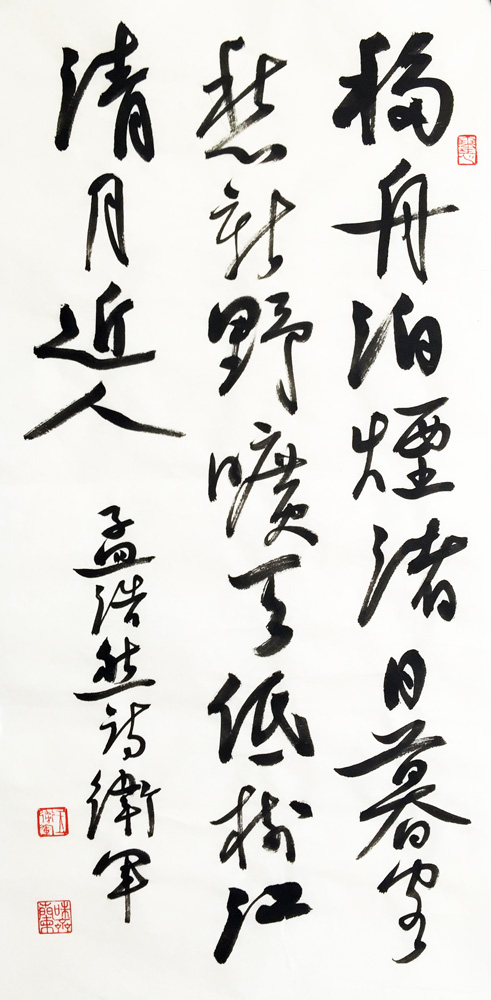 移舟泊煙渚日暮客
愁新野曠天低樹江
清月近人
孟浩然詩衛軍